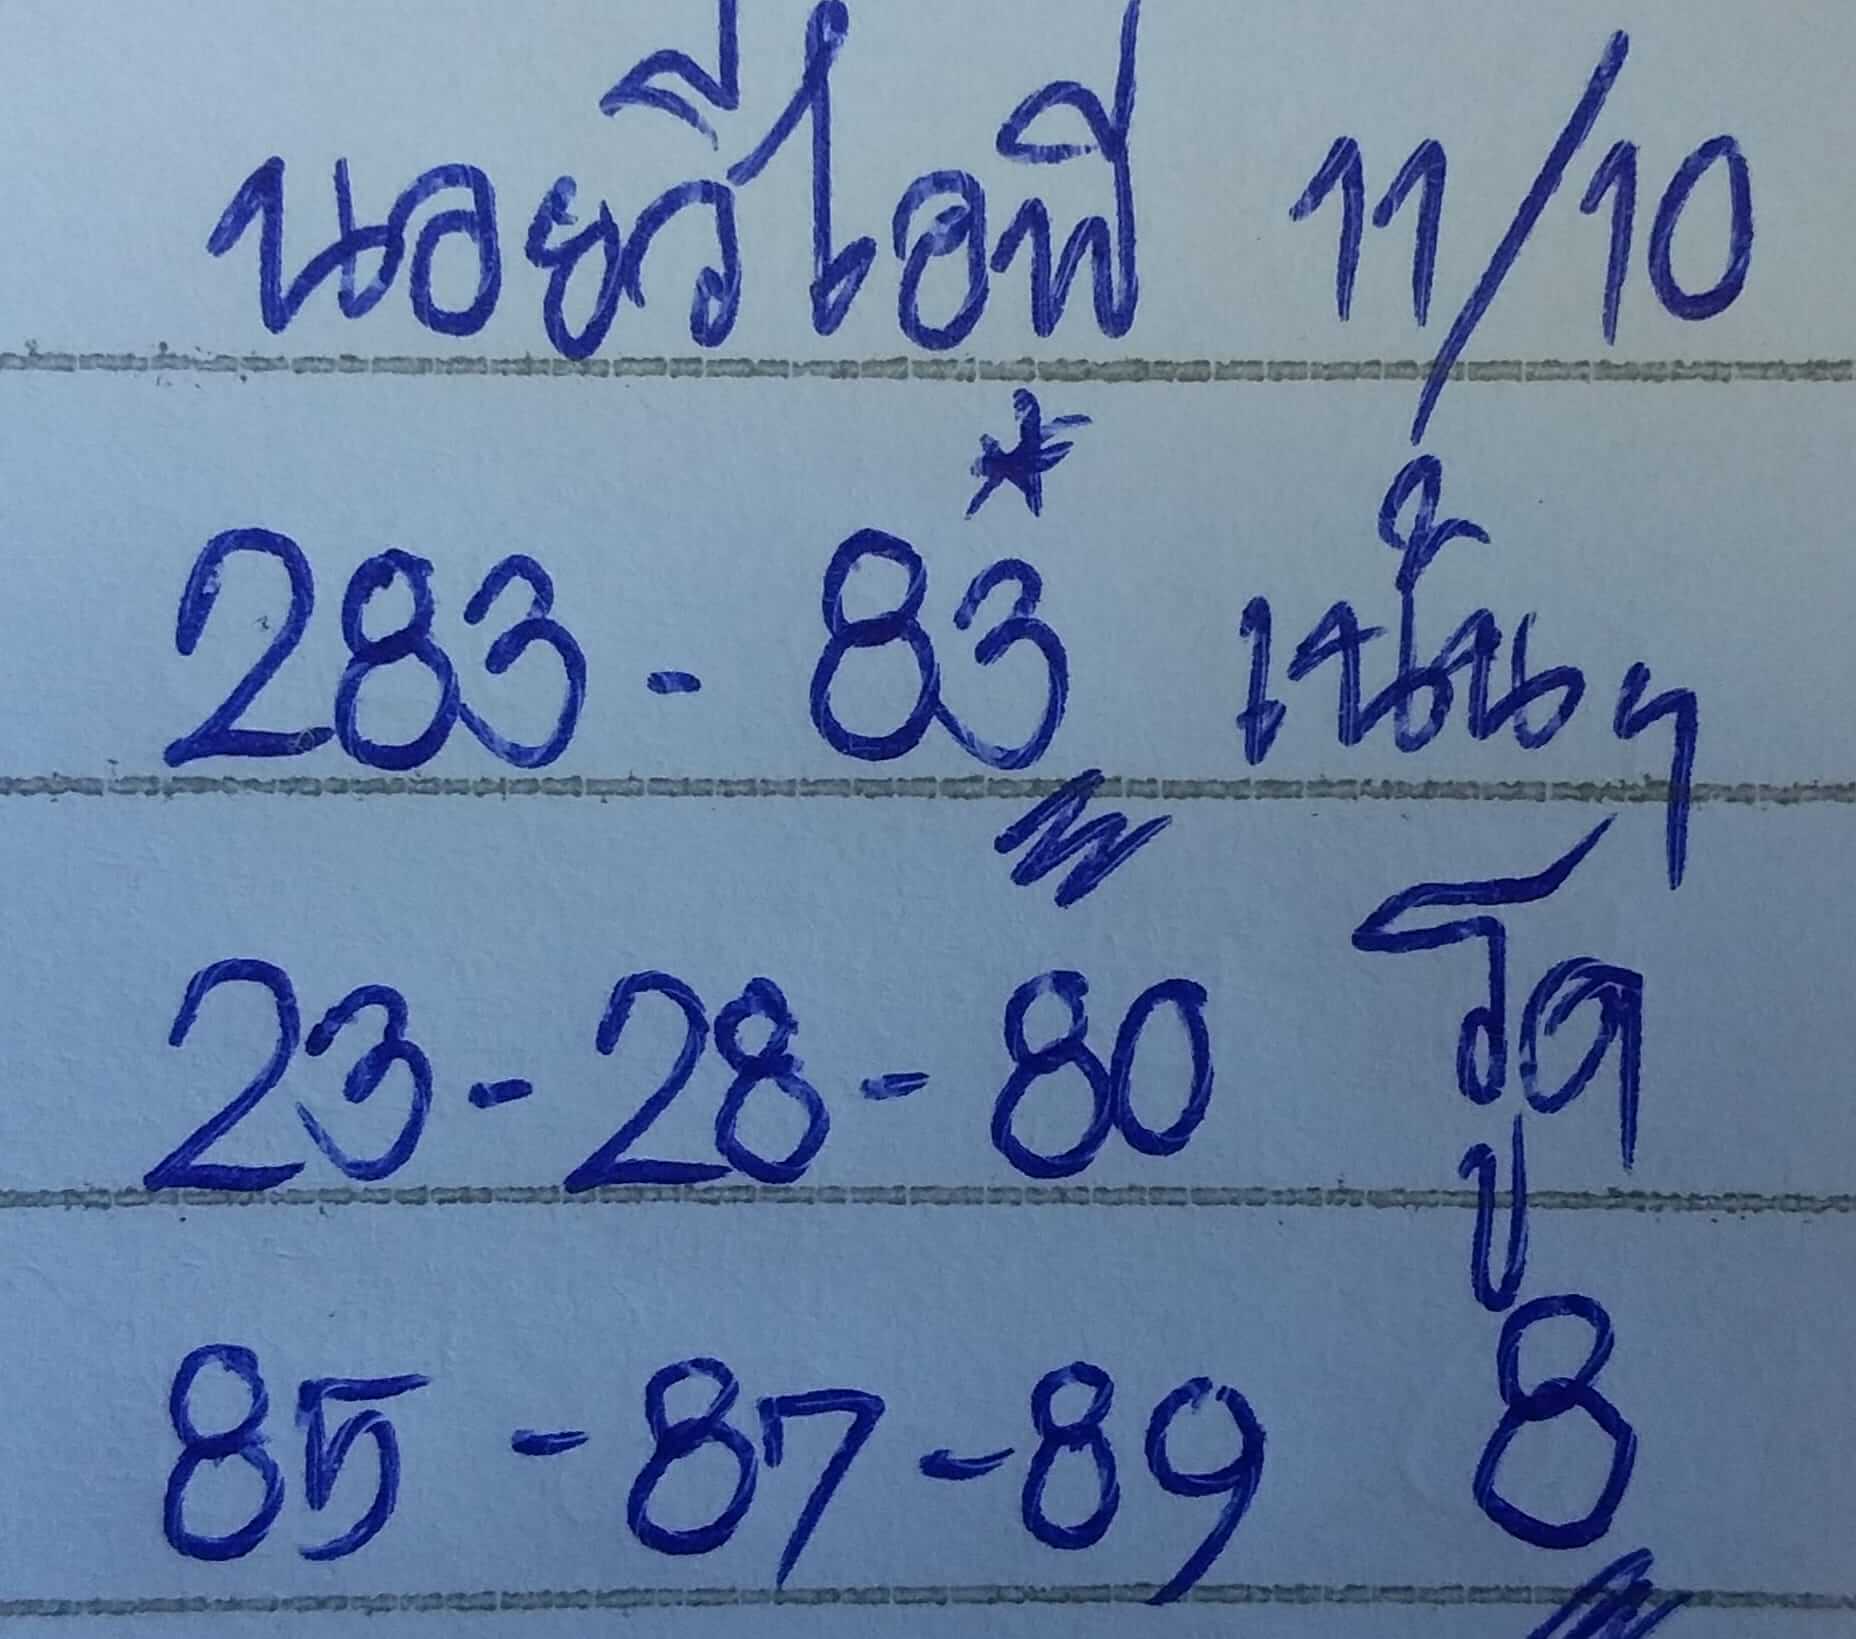 นอยวีไอพี 11/10
283 - 83 เน้นๆ
23 - 28 - 80 รูด
85 - 87 - 89 8